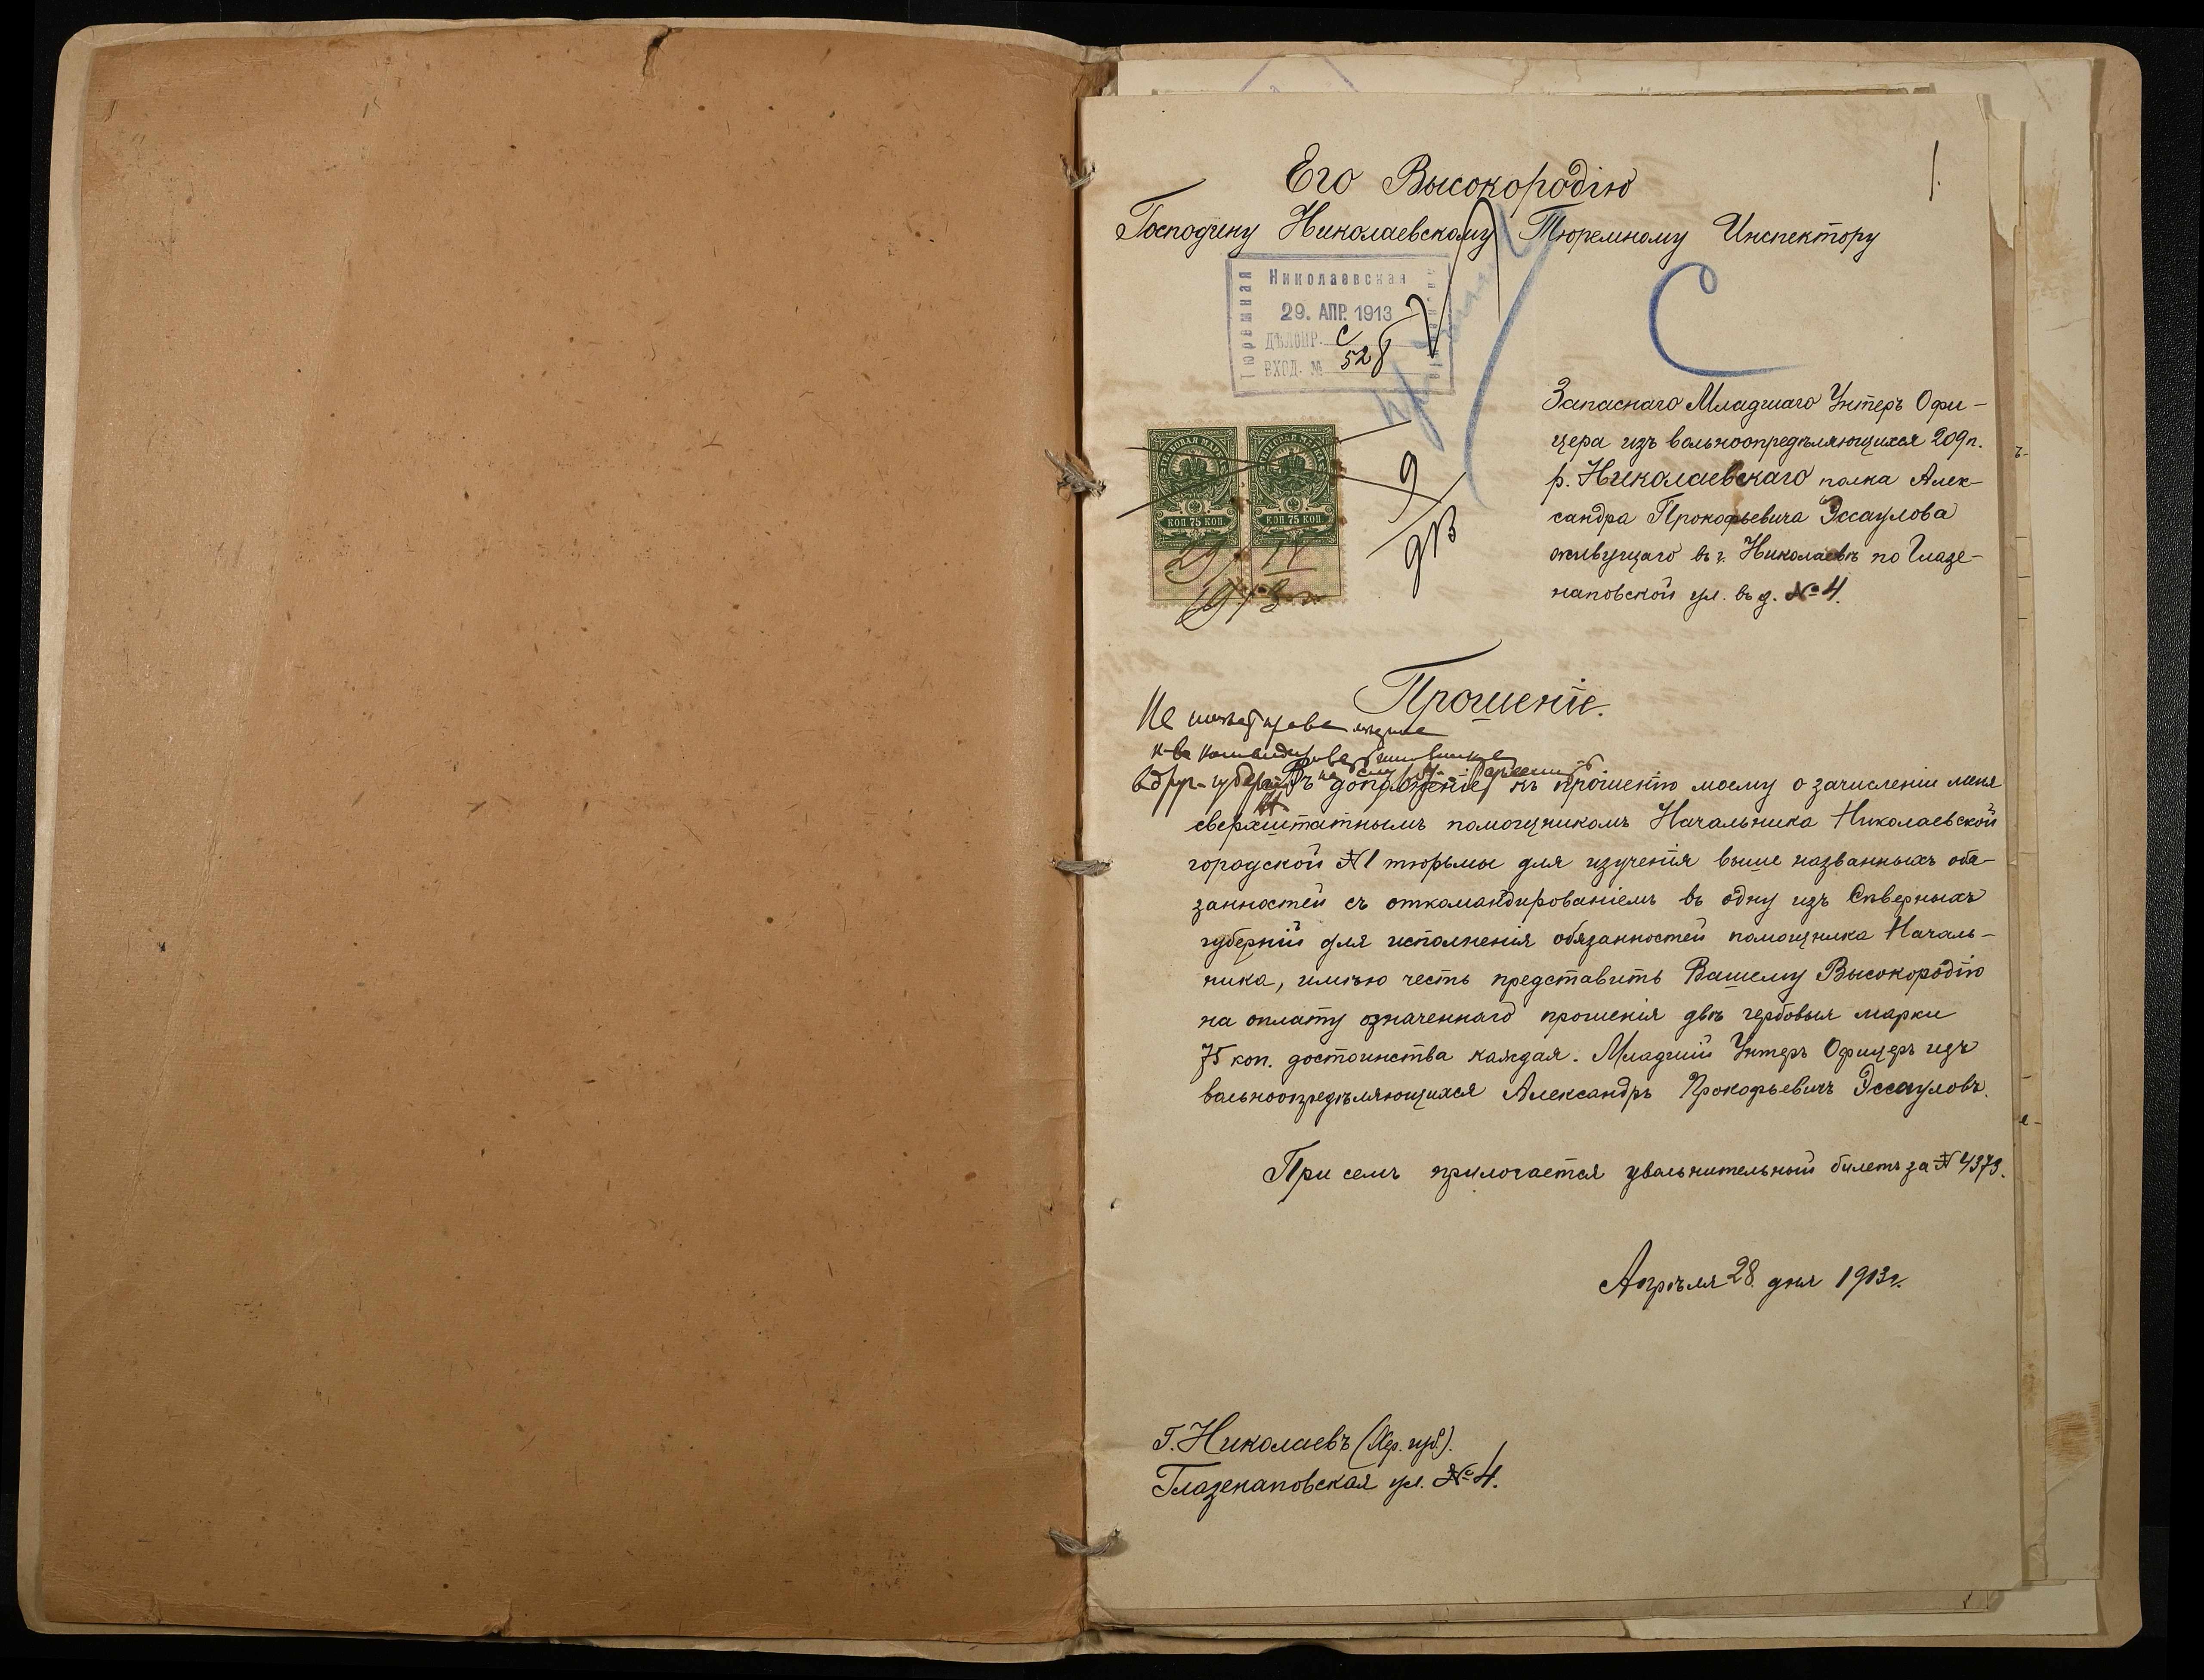 1.
Его Высокородію
Господину Николаевскому Тюремному Инспектору
Николаевская
Тюремная
29. АПР. 1913
ДѢЛОПР. С
ВХОД. № 528
С
Запаснаго Младшаго Унтеръ Офи-
цера изъ вольноопредѣляющихся 209 п.
р. Николаевскаго полка Алек-
сандра Прокофьевича Эссаулова
живущаго въ г. Николаевѣ по Глазе-
наповской ул. въ д. № 4.
ГЕРБОВАЯ МАРКА ГЕРБОВАЯ МАРКА
КОП. 75 КОП. КОП. 75 КОП.
29 IV
1913 г.
Прошеніе.
Не
Въ дополненіе къ прошенію моему о зачисленіи меня
сверхштатнымъ помощникомъ Начальника Николаевской
городской № 1 тюрьмы для изученія выше названныхъ обя-
занностей съ откомандированіемъ въ одну изъ Сѣверныхъ
губерній для исполненія обязанностей помощника Началь-
ника, имѣю честь представить Вашему Высокородію
на оплату означеннаго прошенія двѣ гербовыя марки
75 коп. достоинства каждая. Младшій Унтеръ Офицеръ изъ
вольноопредѣляющихся Александръ Прокофьевичъ Эссауловъ.
При семъ прилогается увольнительный билетъ за № 4373.
Апрѣля 28 дня 1913 г.
Г. Николаевъ (Хер. губ.).
Глазенаповская ул. № 4.